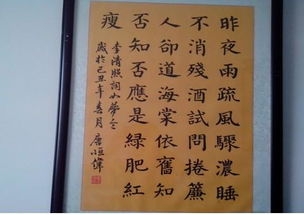 昨夜雨疏風驟濃睡
不消殘酒試問捲簾
人卻道海棠依舊知
否知否應是綠肥紅
瘦
李清照詞如夢令
歲於己丑年春月